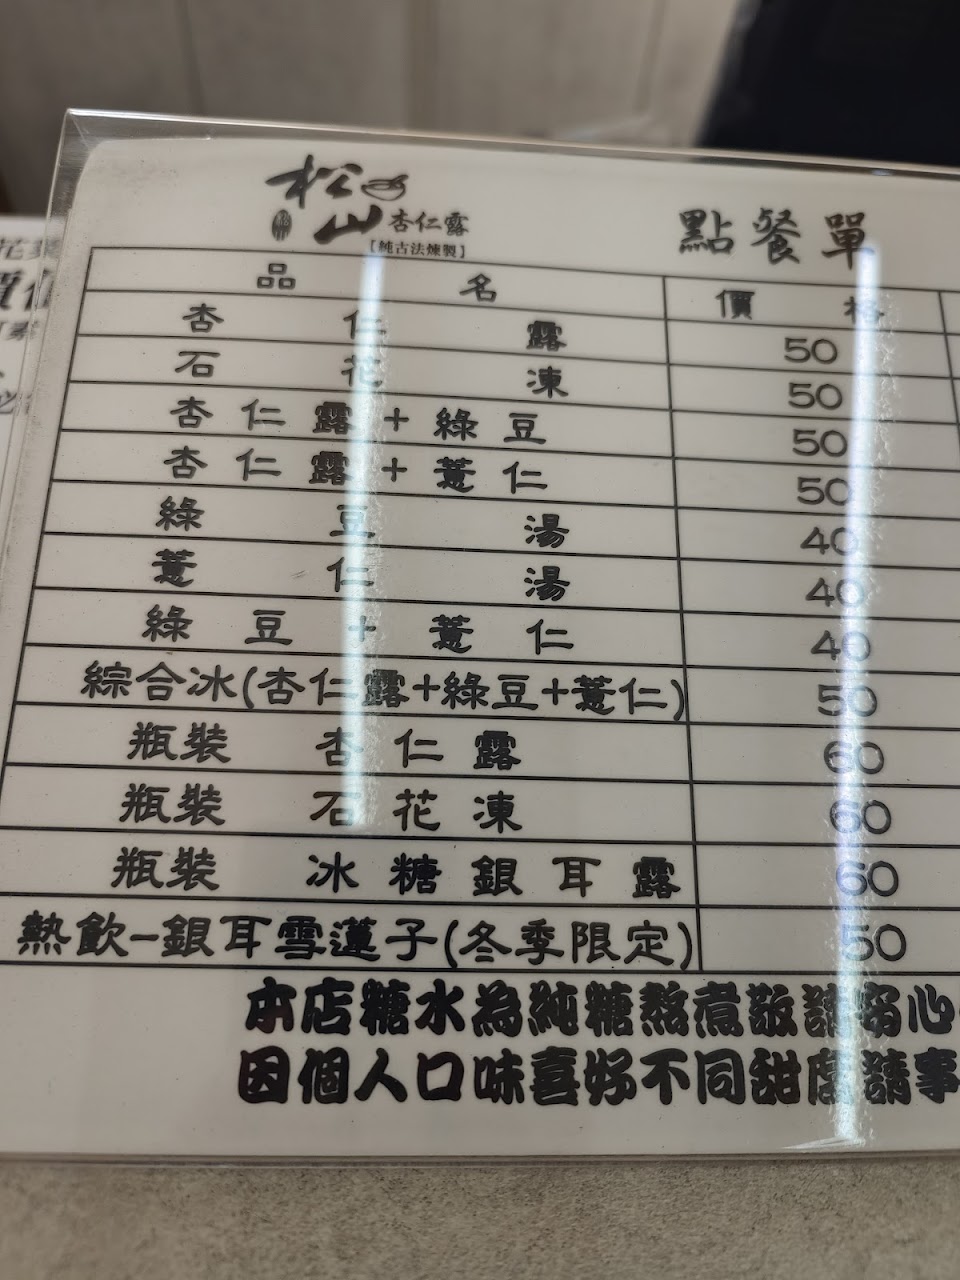 松山杏仁露
【純古法煉製】
點餐單
品名 價格
杏仁露 50
石花凍 50
杏仁露+綠豆 50
杏仁露+薏仁 50
綠豆湯 40
薏仁湯 40
綠豆+薏仁 40
綜合冰(杏仁露+綠豆+薏仁) 50
瓶裝 杏仁露 60
瓶裝 石花凍 60
瓶裝 冰糖銀耳露 60
熱飲-銀耳雪蓮子(冬季限定) 50
本店糖水為純糖熬煮敬請安心
因個人口味喜好不同甜度請事